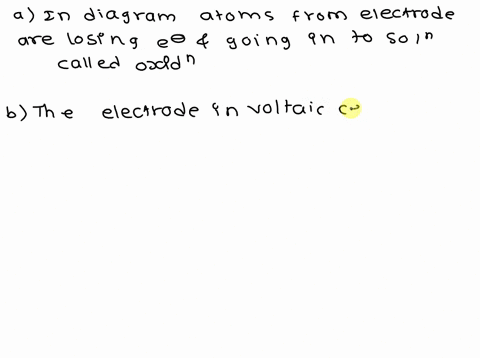 a) In diagram atoms from electrode
are losing e⊖ & going in to so,ⁿ
called oxidⁿ
b) The electrode in voltaic c